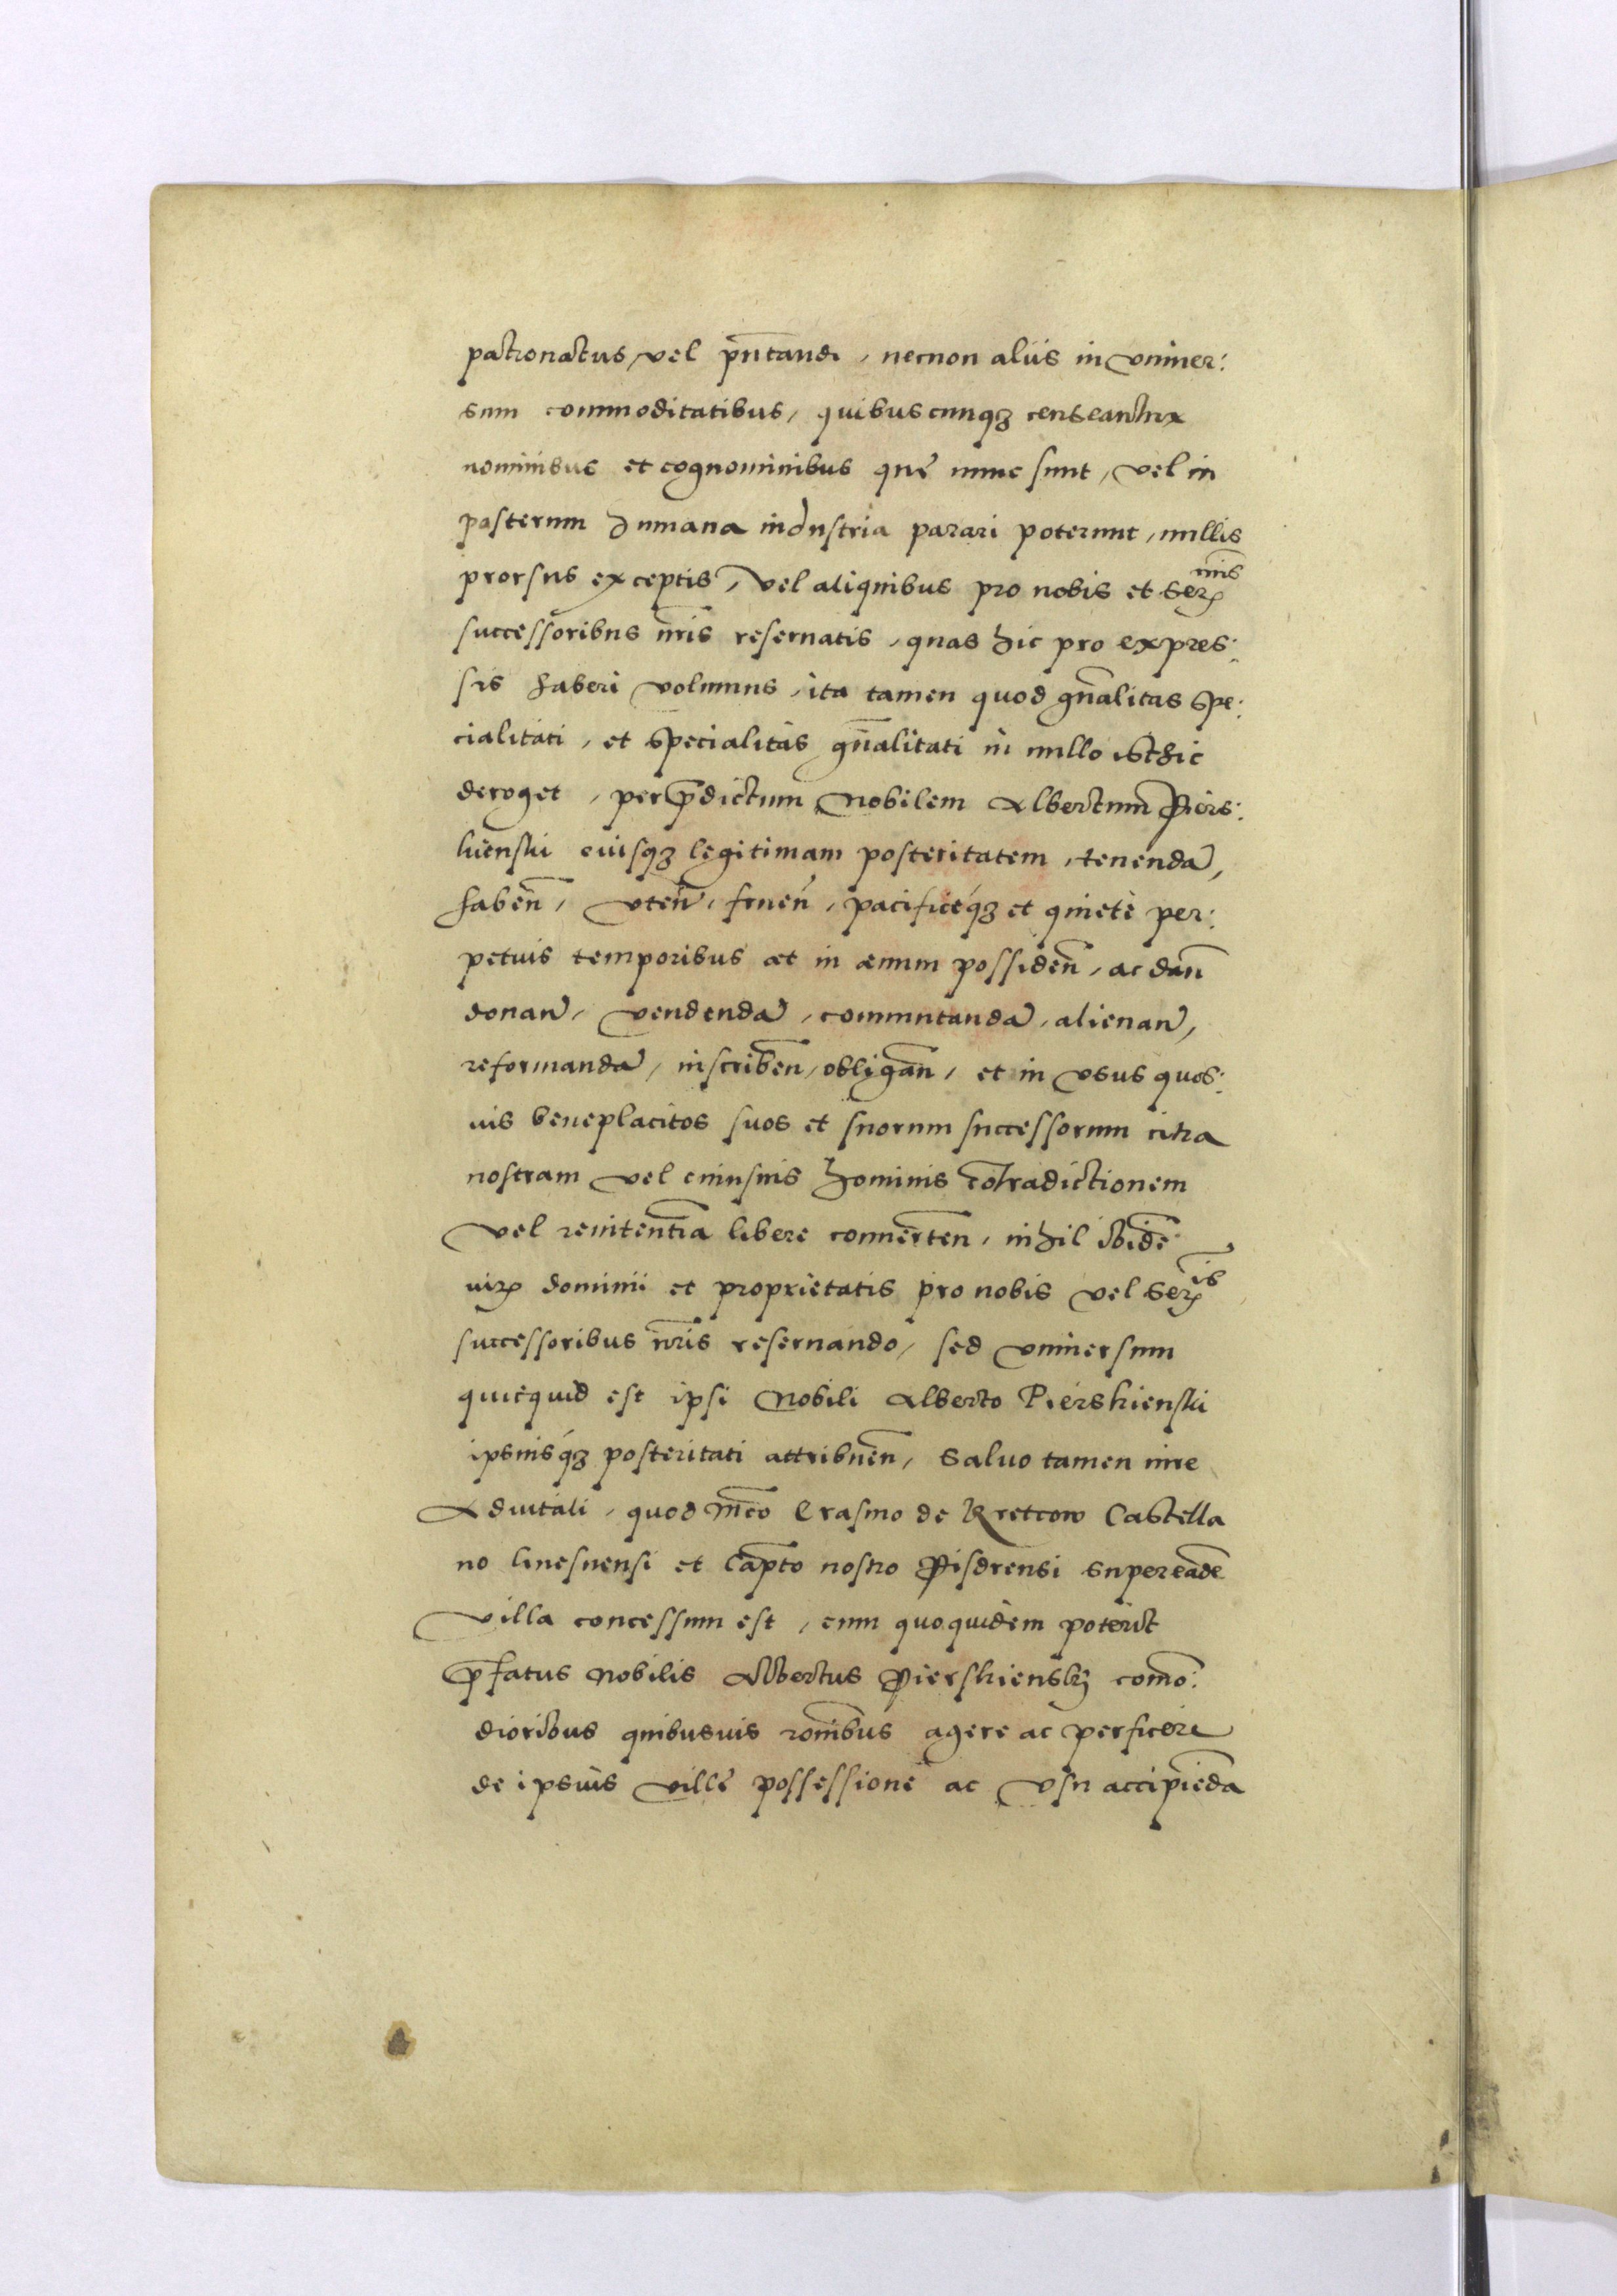 patronatus, vel p̄ntandi, necnon aliis in vniuer:
sum commoditatibus, quibuscunqꝫ censeantur
nominibus et cognominibus quę nunc sunt, vel in
posterum humana industria parari poterunt, nullis
prorsus exceptis, vel aliquibus pro nobis et Serꝫ^mis
successoribus nr̄is reseruatis, quas hic pro expres:
sis haberi volumus, ita tamen quod gn̄alitas spe:
cialitati, et specialitas gn̄alitati in nullo isthic
deroget, per p̄dictum Nobilem Albertum Piers:
kienski eiusqꝫ legitimam posteritatem, tenendā,
haben̄, vten̄, fruen̄, pacificeqꝫ et quiete per:
petuis temporibus et in æuum possiden̄, ac dan̄
donan̄, vendendā, commutandā, alienan̄,
reformandā, inscriben̄, obligan̄, et in vsus quos:
uis beneplacitos suos et suorum successorum citra
nostram vel cuiusuis hominis cōtradictionem
vel renitentiā libere conuerten̄, nihil ibidē
iurꝫ dominii et proprietatis pro nobis vel Serꝫ^is
successoribus nr̄is reseruando, sed vniuersum
quicquid est ipsi Nobili Alberto Pierskienski
ipsiusqꝫ posteritati attribuen̄, saluo tamen iure
Aduitali, quod Mc̄o Erasmo de Kretcow Castella
no Gnesnensi et Capt̄o nostro Pisdrensi super eadē
villa concessum est, cum quo quidem poterit
p̄fatus Nobilis Albertus Pierskiensky com̄o:
dioribus quibusuis ro̅nibus agere ac perficere
de ipsius villę possessione ac vsu accipiēda